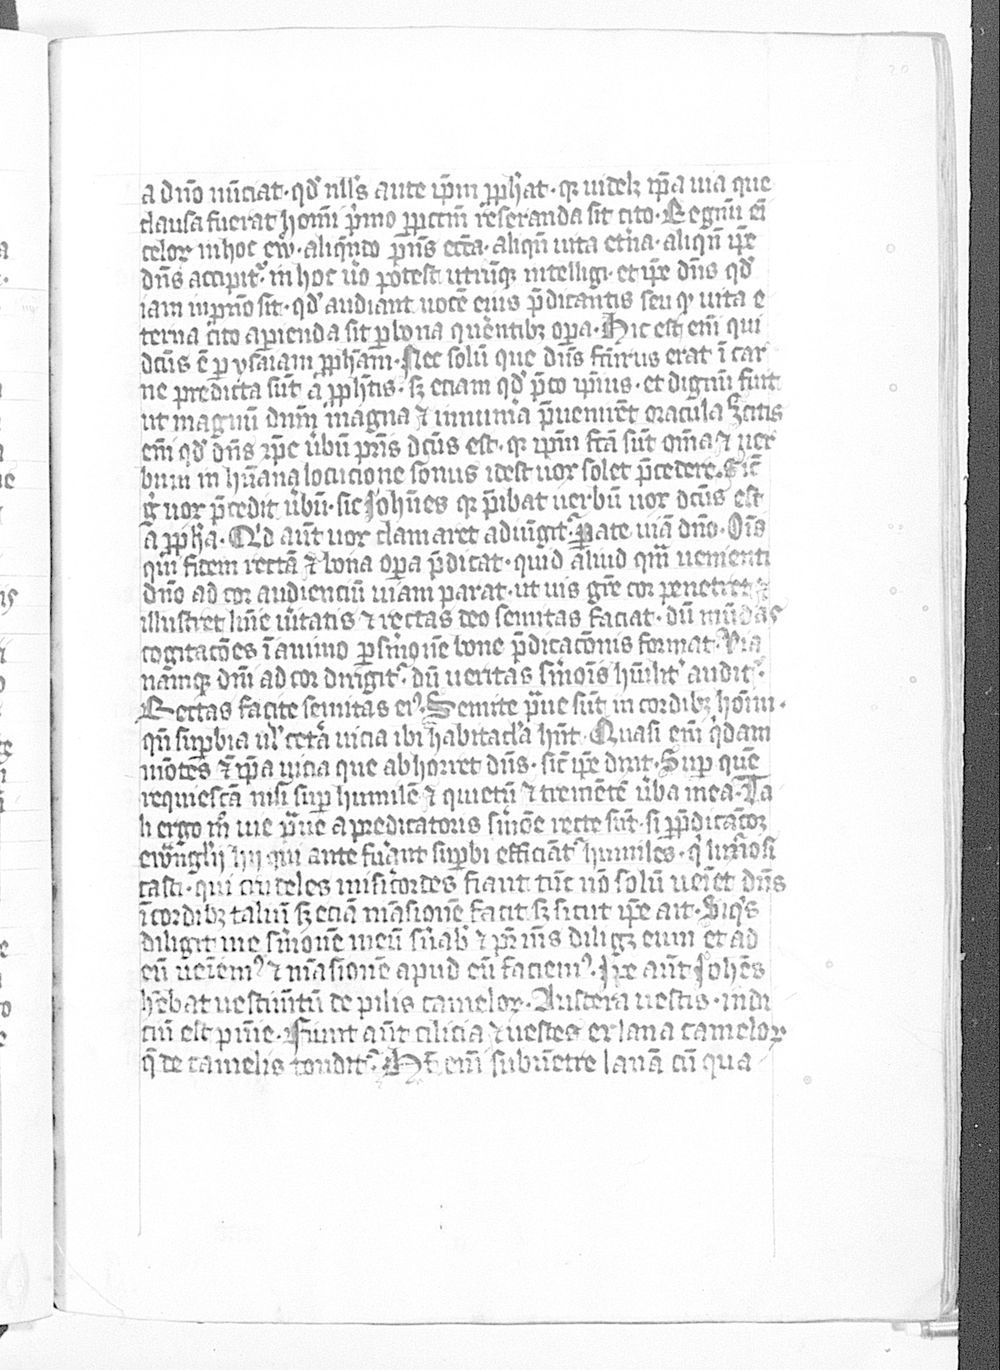 a dn̄o nūciat · qd' nll's ante ip̄m ꝓph̄at · qꝛ uidelꝫ ip̄a uia que
clausa fuerat hom̄i p̄mo ꝓpt̄m reseranda sit cito · Regnū ei
celoꝝ in hoc ew̄ · aliqn̄do p̄n̄s ecc̄a · aliqn̄ uita et̄na · aliqn̄ ip̄e
dn̄s accipit᷑ · in hoc u̇o potest utrūqꝫ intelligi · et ip̄e dn̄s qd'
iam in ꝓxi̅o sit · qd' audiant uocē eius p̄dicantis seu qꝛ uita e
terna cito aperienda sit ꝑ bona querentibꝫ oꝑa · Hic est eni̅ qui
dcūs ē ꝑ ysaiam ꝓph̄am · Nec solū que dn̄s fc̄urus erat ī car
ne predicta sūt a ꝓph̄etis · sꝫ eciam qd' p̄co ip̄ius · et dignū fuit
ut magnū dn̄m magna ⁊ inmunia p̄uenirēt oracula
eni̅ qd' dn̄s xp̄c u̇bū pr̄is dcūs est · qꝛ ip̄m fc̄a sūt om̄ia ⁊ uer
bum in hūana locucione sonus idest uox solet p̄cedere · Sic̄
g̊ uox p̄cedit u̇bū · sic Joh̄nes qꝛ p̄ibat uerbū uox dcūs est
a ꝓph̄a · Qd' aūt uox clamaret adiūgit᷑ · Pate uiā dn̄o · Oīs
qui fidem rectā ⁊ bona oꝑa p̄dicat · quid aliud qm̄ uenienti
dn̄o ad cor audienciū uiam parat · ut uis gr̄e cor penetret ⁊
illustret lūīe u̇itatis ⁊ rectas deo semitas faciat · dū mūdas
cogitacōes ī animo ꝑ sm̄onē bone p̄dicacōnis format · Via
namqꝫ dn̄i ad cor dirigit᷑ · dū ueritas sm̄oīs hūilit᷑ audit᷑ ·
Rectas facite semitas eiꝰ · Semite p̄ue sūt in cordibꝫ hoīm ·
qn̄ suꝑbia ul' cet̄a uicia ibi habitac̄la hn̄t · Quasi eni̅ q̄dam
mōtes ⁊ ip̄a uicia que abhorret dn̄s · sic̄ ip̄e dixit · Suꝑ quē
requiescā nisi suꝑ humilē ⁊ quietū ⁊ tremētē u̇ba mea · Ta
li ergo m̊ uie p̄ue a predicatoris sm̄oē recte sūt · si ꝑ p̄dicatōꝫ
ewn̄glij hij qui ante fūant suꝑbi efficiāt᷑ humiles · q̇ lux̄iosi
casti · qui crudeles misi̇cordes fiant tūc nō solū ueiet dn̄s
ī cordibꝫ taliū sꝫ eciā māsionē facit sꝫ sicut ip̄e ait · Siq̇s
diligit me sm̄onē meū sūab' ⁊ pr̄ mīs diligꝫ eum et ad
eū ueiemꝰ ⁊ māsionē apud eū faciemꝰ · Ip̄e aūt Joh̄es
hēbat uestimtū de pilis cameloꝝ · Austera uestis · indi
ciū est pūie · Fiunt aūt cilicia ⁊ uestes ex lana cameloꝝ
q̄ de camelis tondit᷑ · Hn̄t eni̅ sub uētre lanā cū qua